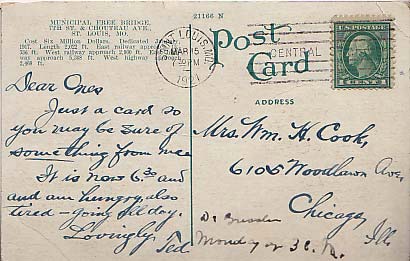 MUNICIPAL FREE BRIDGE,
7TH ST. & CHOUTEAU AVE.,
ST. LOUIS, MO.
Cost Six Million Dollars. Dedicated
1917. Length 2,022 ft. East railway
334 ft. West railway approach 2,900 ft. East
way approach 5,388 ft. West highway
2,460 ft.
21166 N
Post
Card
ST. LOUIS, MO.
MAR 15
PM
1921
CENTRAL
1 CENT 1
ADDRESS
Dear Ones
Just a card so
you may be sure of
something from me
It is now 6.30 and
and am hungry, also
tired - going all day.
Lovingly,
Ted
Mrs. Wm. H. Cook,
6105 Woodlawn Ave,
Chicago,
Ills
Monday or